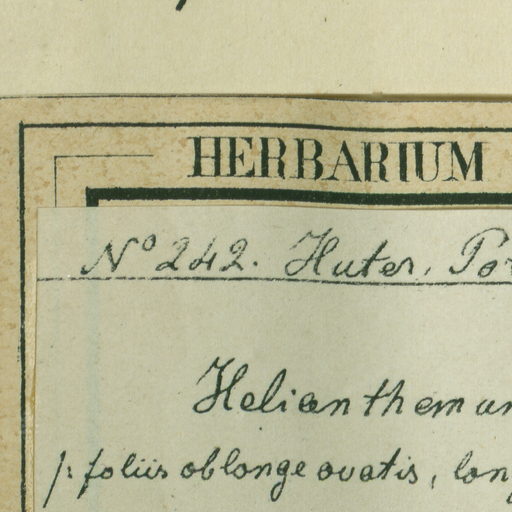 HERBARIUM
Nº 242. Huter, Por
Helianthemum
f: foliis oblonge ovatis, long